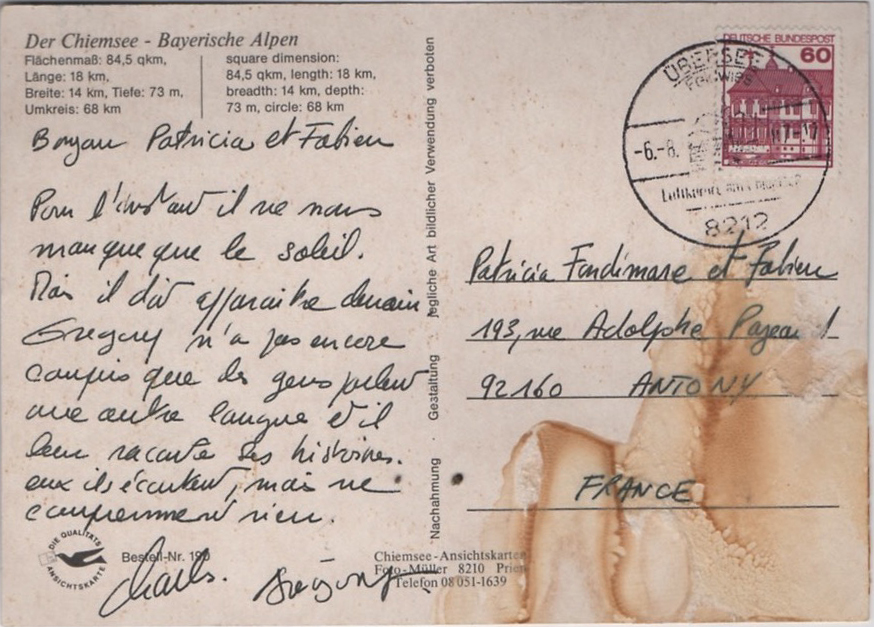 Der Chiemsee - Bayerische Alpen
Flächenmaß: 84,5 qkm,
Länge: 18 km,
Breite: 14 km, Tiefe: 73 m,
Umkreis: 68 km
square dimension:
84,5 qkm, length: 18 km,
breadth: 14 km, depth:
73 m, circle: 68 km
Patricia et Fabien
Pour l'instant il ne nous
manque que le soleil.
Mais il doit apparaitre demain
Gregory n'a pas encore
compris que des gens parlent
une autre langue et il
leur raconte ses histoires.
eux ils écoutent, mais ne
comprennent rien.
Charles. Grégory
DIE QUALITÄTS
ANSICHTSKARTE
Bestell-Nr. 190
Chiemsee-Ansichtskarten
Foto-Müller 8210 Prien
Telefon 08051-1639
Nachahmung · Gestaltung · jegliche Art bildlicher Verwendung verboten
DEUTSCHE BUNDESPOST
60
ÜBERSEE
-6.-8.
8212
Patricia et Fabien
193, rue Adolphe
92160 ANTONY
FRANCE